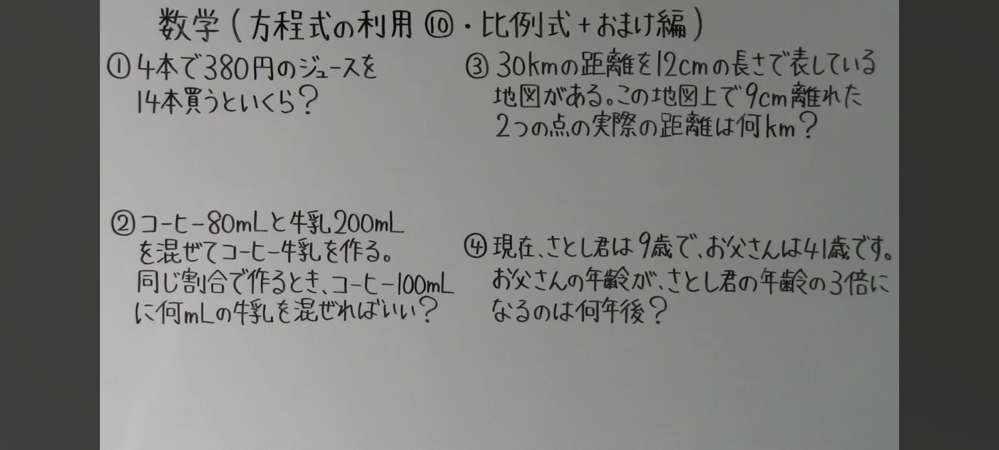 数学(方程式の利用⑩・比例式+おまけ編)
①4本で380円のジュースを
14本買うといくら?
②コーヒー80mLと牛乳200mL
を混ぜてコーヒー牛乳を作る。
同じ割合で作るとき、コーヒー100mL
に何mLの牛乳を混ぜればいい?
③30kmの距離を12cmの長さで表している
地図がある。この地図上で9cm離れた
2つの点の実際の距離は何km?
④現在、さとし君は9歳で、お父さんは41歳です。
お父さんの年齢が、さとし君の年齢の3倍に
なるのは何年後?